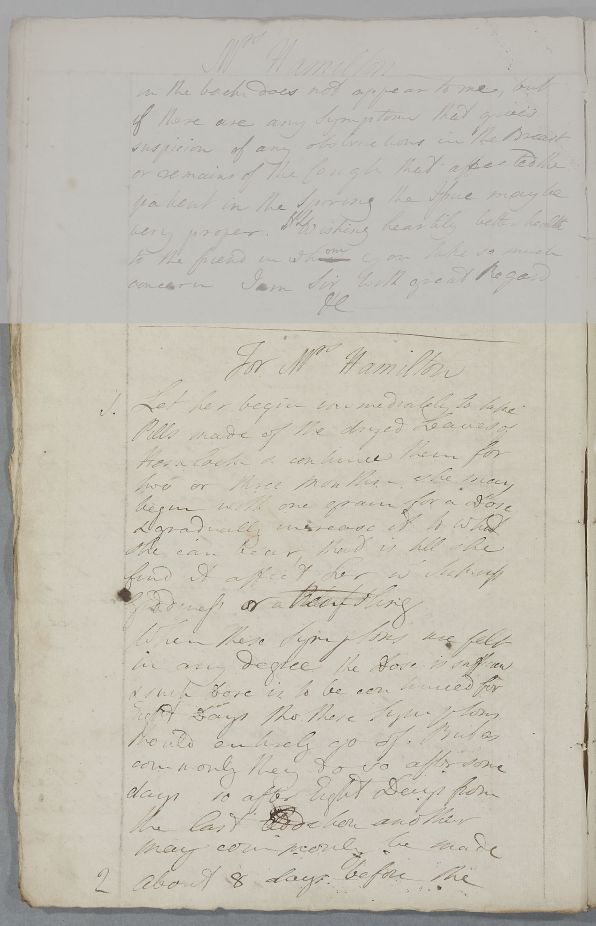 Mrs Hamilton
in the back does not appear to me, but
if there are any Symptoms that gives
suspicion of any obstructions in the Breast
or remains of the Cough that affected the
in the Spring the may be
very proper. Wishing heartily better health
to the friend in whom you take so much
concern I am Sir With great Regard
&c
For Mrs Hamilton
1. Let her begin immediately to take
Pills made of the dryed Leaves of
Hemlock & continue them for
two or three months. She may
begin with one grain for a Dose
& gradually increase it to what
she can bear, that is till she
find it affect her w
Gidness or a
When these Symptoms are felt
in any degree the Dose is
& such Dose is to be continued for
Eight Days tho these Symptoms
would entirely go off. But as
commonly they do so after some
days so after Eight Days from
the last addition another
may commonly be made
2 about 8 days before the